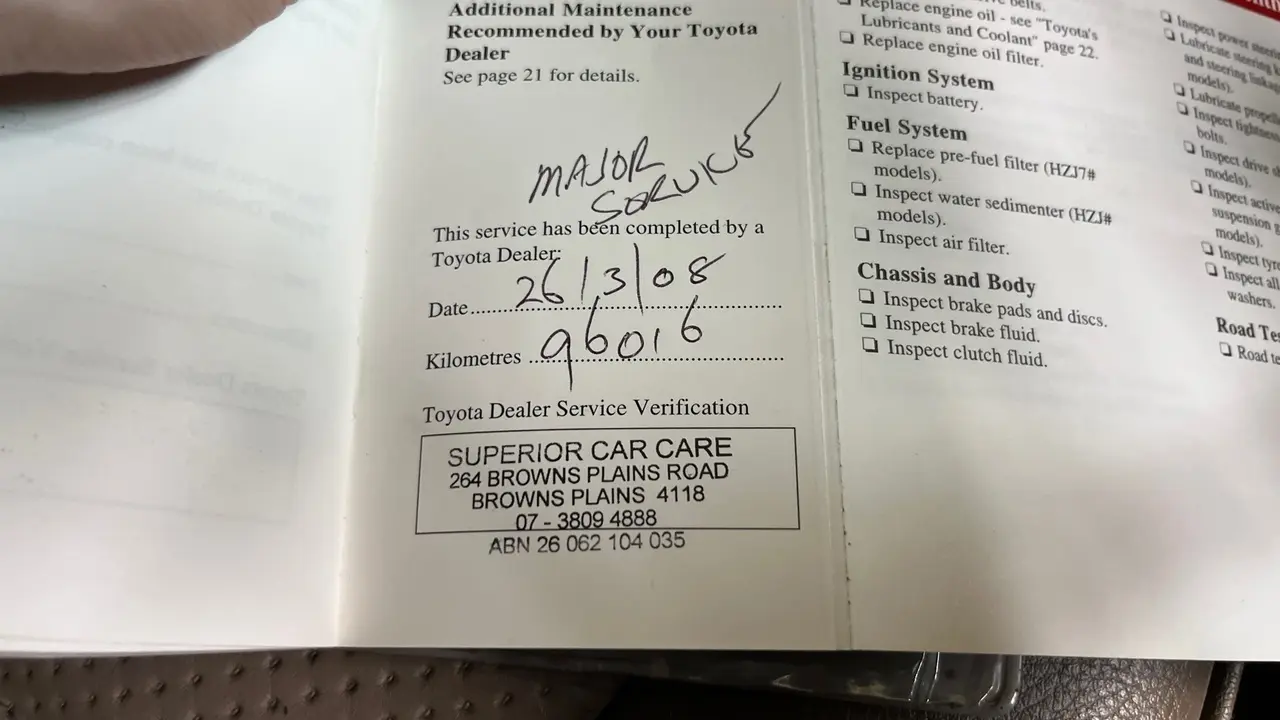 Additional Maintenance
Recommended by Your Toyota
Dealer
See page 21 for details.
MAJOR
SERVICE
This service has been completed by a
Toyota Dealer:
Date 26/3/08
Kilometres 96016
Toyota Dealer Service Verification
SUPERIOR CAR CARE
264 BROWNS PLAINS ROAD
BROWNS PLAINS 4118
07 - 3809 4888
ABN 26 062 104 035
belts.
Replace engine oil - see "Toyota's
Lubricants and Coolant" page 22.
Replace engine oil filter.
Ignition System
Inspect battery.
Fuel System
Replace pre-fuel filter (HZJ7#
models).
Inspect water sedimenter (HZJ#
models).
Inspect air filter.
Chassis and Body
Inspect brake pads and discs.
Inspect brake fluid.
Inspect clutch fluid.
Inspect power
Lubricate steering
and steering
models).
Lubricate
Inspect tightness
bolts.
Inspect drive
models).
Inspect
suspension
models).
Inspect
Inspect all
washers.
Road
Road